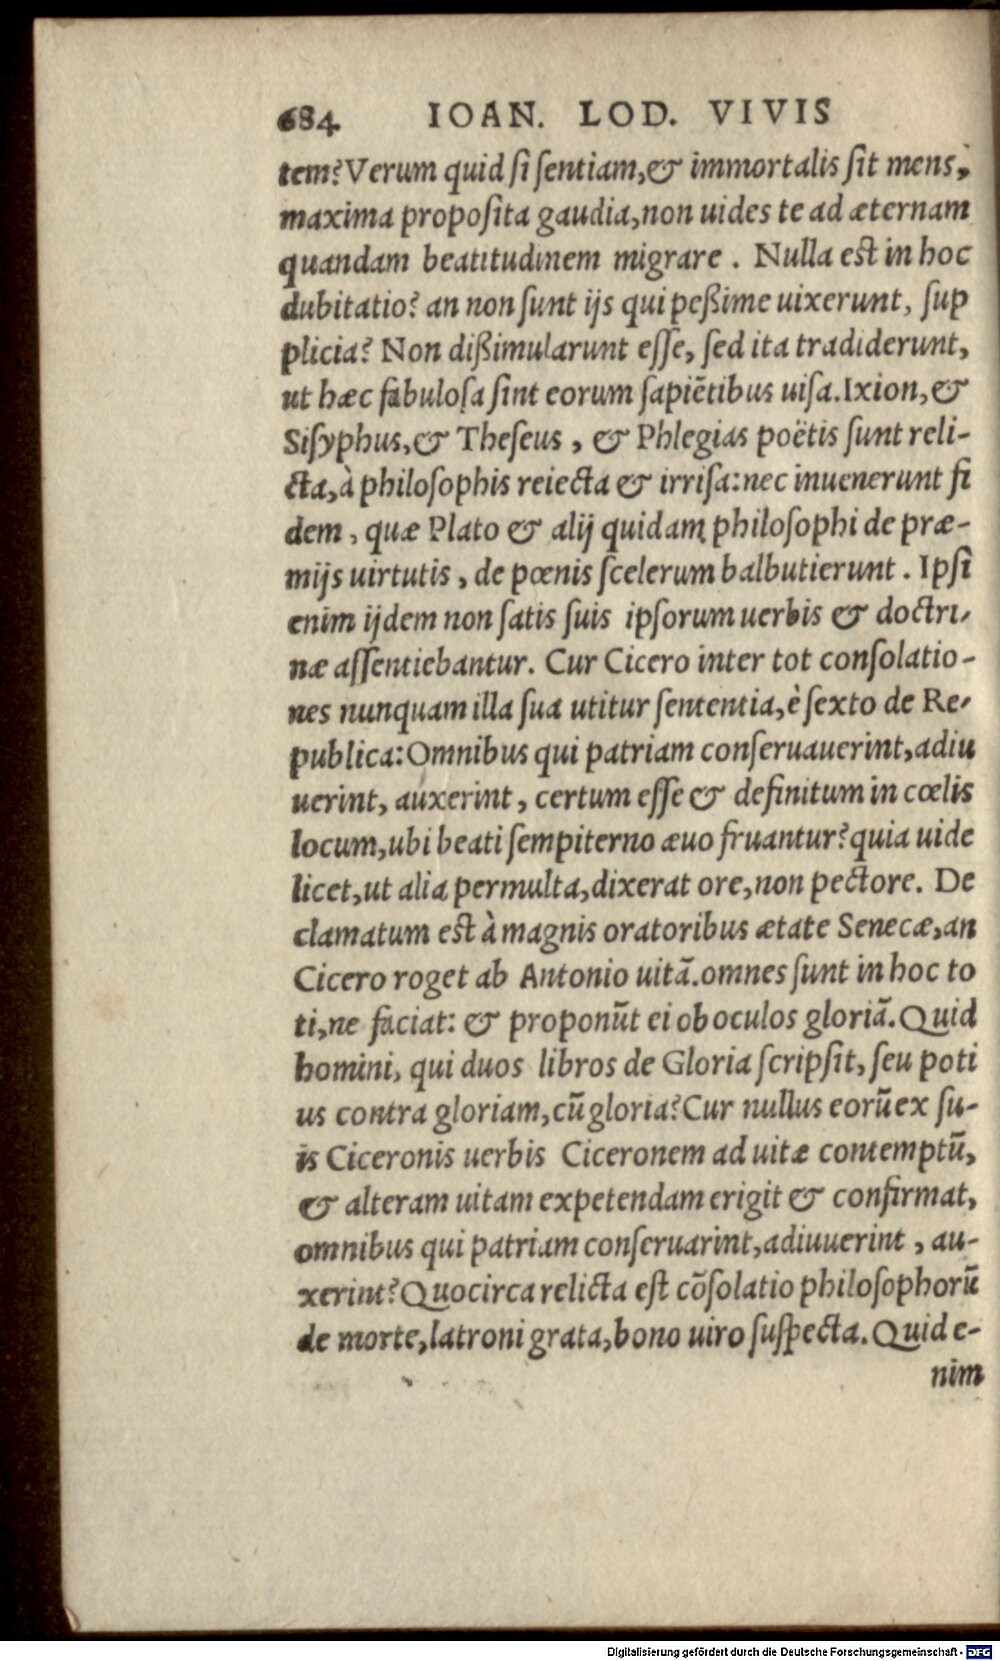 684 IOAN. LOD. VIVIS
tem? Verum quid si sentiam, & immortalis sit mens,
maxima proposita gaudia, non uides te ad æternam
quandam beatitudinem migrare. Nulla est in hoc
dubitatio? an non sunt ijs qui peßime uixerunt, sup
plicia? Non dißimularunt esse, sed ita tradiderunt,
ut hæc fabulosa sint eorum sapiẽtibus uisa. Ixion, &
Sisyphus, & Theseus, & Phlegias poëtis sunt reli-
cta, à philosophis reiecta & irrisa: nec inuenerunt fi
dem, quæ Plato & alij quidam philosophi de præ-
mijs uirtutis, de pœnis scelerum balbutierunt. Ipsi
enim ijdem non satis suis ipsorum uerbis & doctri-
næ assentiebantur. Cur Cicero inter tot consolatio-
nes nunquam illa sua utitur sententia, è sexto de Re-
publica: Omnibus qui patriam conseruauerint, adiu
uerint, auxerint, certum esse & definitum in cœlis
locum, ubi beati sempiterno æuo fruantur? quia uide
licet, ut alia permulta, dixerat ore, non pectore. De
clamatum est à magnis oratoribus ætate Senecæ, an
Cicero roget ab Antonio uitã. omnes sunt in hoc to
ti, ne faciat: & proponũt ei ob oculos gloriã. Quid
homini, qui duos libros de Gloria scripsit, seu poti
us contra gloriam, cũ gloria? Cur nullus eorũ ex su-
is Ciceronis uerbis Ciceronem ad uitæ contemptũ,
& alteram uitam expetendam erigit & confirmat,
omnibus qui patriam conseruarint, adiuuerint, au-
xerint? Quocirca relicta est cõsolatio philosophorũ
de morte, latroni grata, bono uiro suspecta. Quid e-
nim
Digitalisierung gefördert durch die Deutsche Forschungsgemeinschaft - DFG